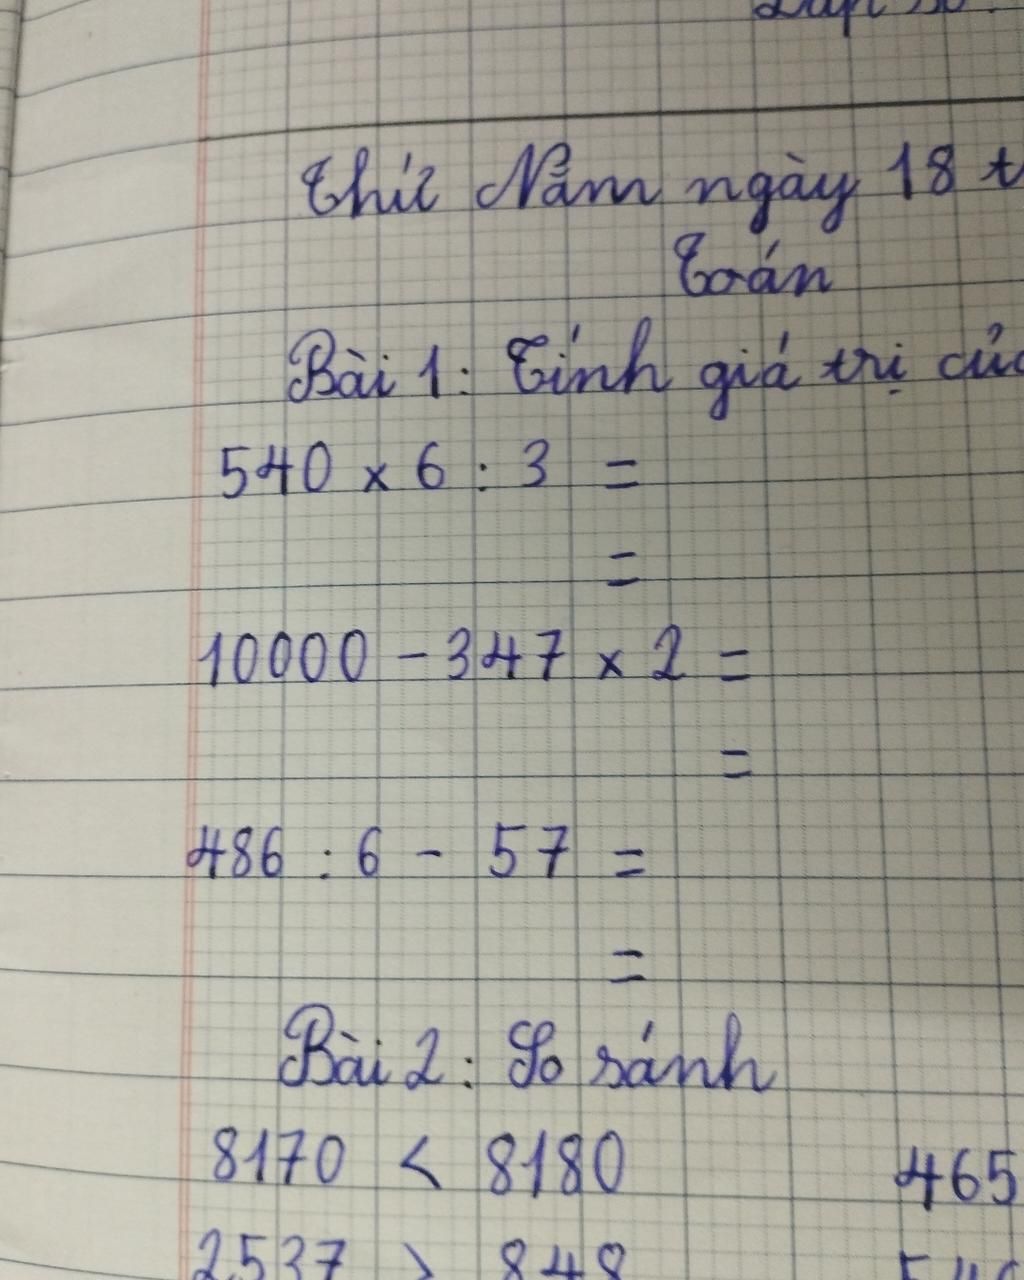 Thứ Năm ngày 18 t
Toán
Bài 1: Tính giá trị củ
540 × 6 : 3 =
=
10000 - 347 × 2 =
=
486 : 6 - 57 =
=
Bài 2: So sánh
8170 < 8180 465
2537 > 848